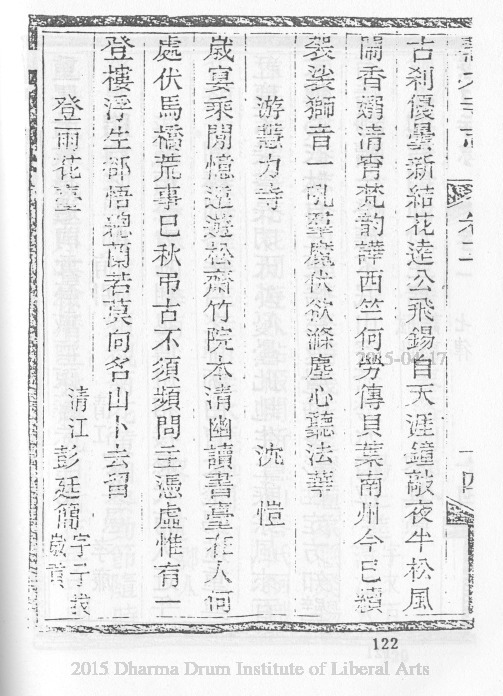 古刹優曇新結花逵公飛錫自天涯鐘敲夜半松風
鬧香爇清宵梵韵譁西竺何勞傳貝葉南州今已續
袈裟獅音一吼羣魔伏欲滌塵心聽法華
游慧力寺 沈愷
歲宴乘閒憶遊松齋竹院本清幽讀書臺在人何
處伏馬橋荒事已秋弔古不須頻問主憑虛惟有一
登樓浮生都悟總蘭若莫向名山卜去留
登雨花臺 清江彭廷簡字子
歲貢
122
2015-04-17
2015 Dharma Drum Institute of Liberal Arts